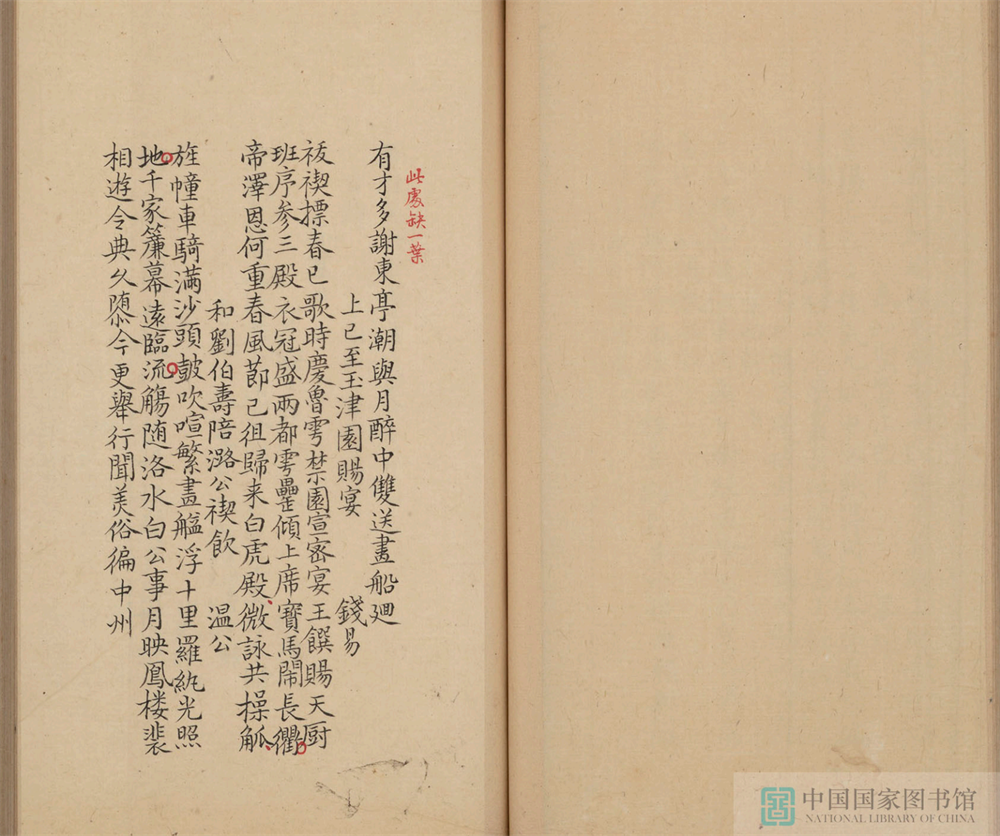 此處缺一葉
有才多謝東亭潮與月醉中雙送畫船迴
上巳至玉津園賜宴 錢易
祓禊摽春已歌時慶魯雩禁園宣密宴王饌賜天厨
班序参三殿衣冠盛兩都雩罍傾上席寳馬閙長衢
帝澤恩何重春風莭已徂歸来白虎殿微詠共操觚
和劉伯壽陪潞公禊飲 温公
旌幢車騎満沙頭皷吹喧繁畫艦浮十里羅紈光照
地千家簾幕遠臨流觴随洛水白公事月映鳳楼裴
相遊令典久隳今更舉行聞美俗徧中州
中国国家图书馆
NATIONAL LIBRARY OF CHINA